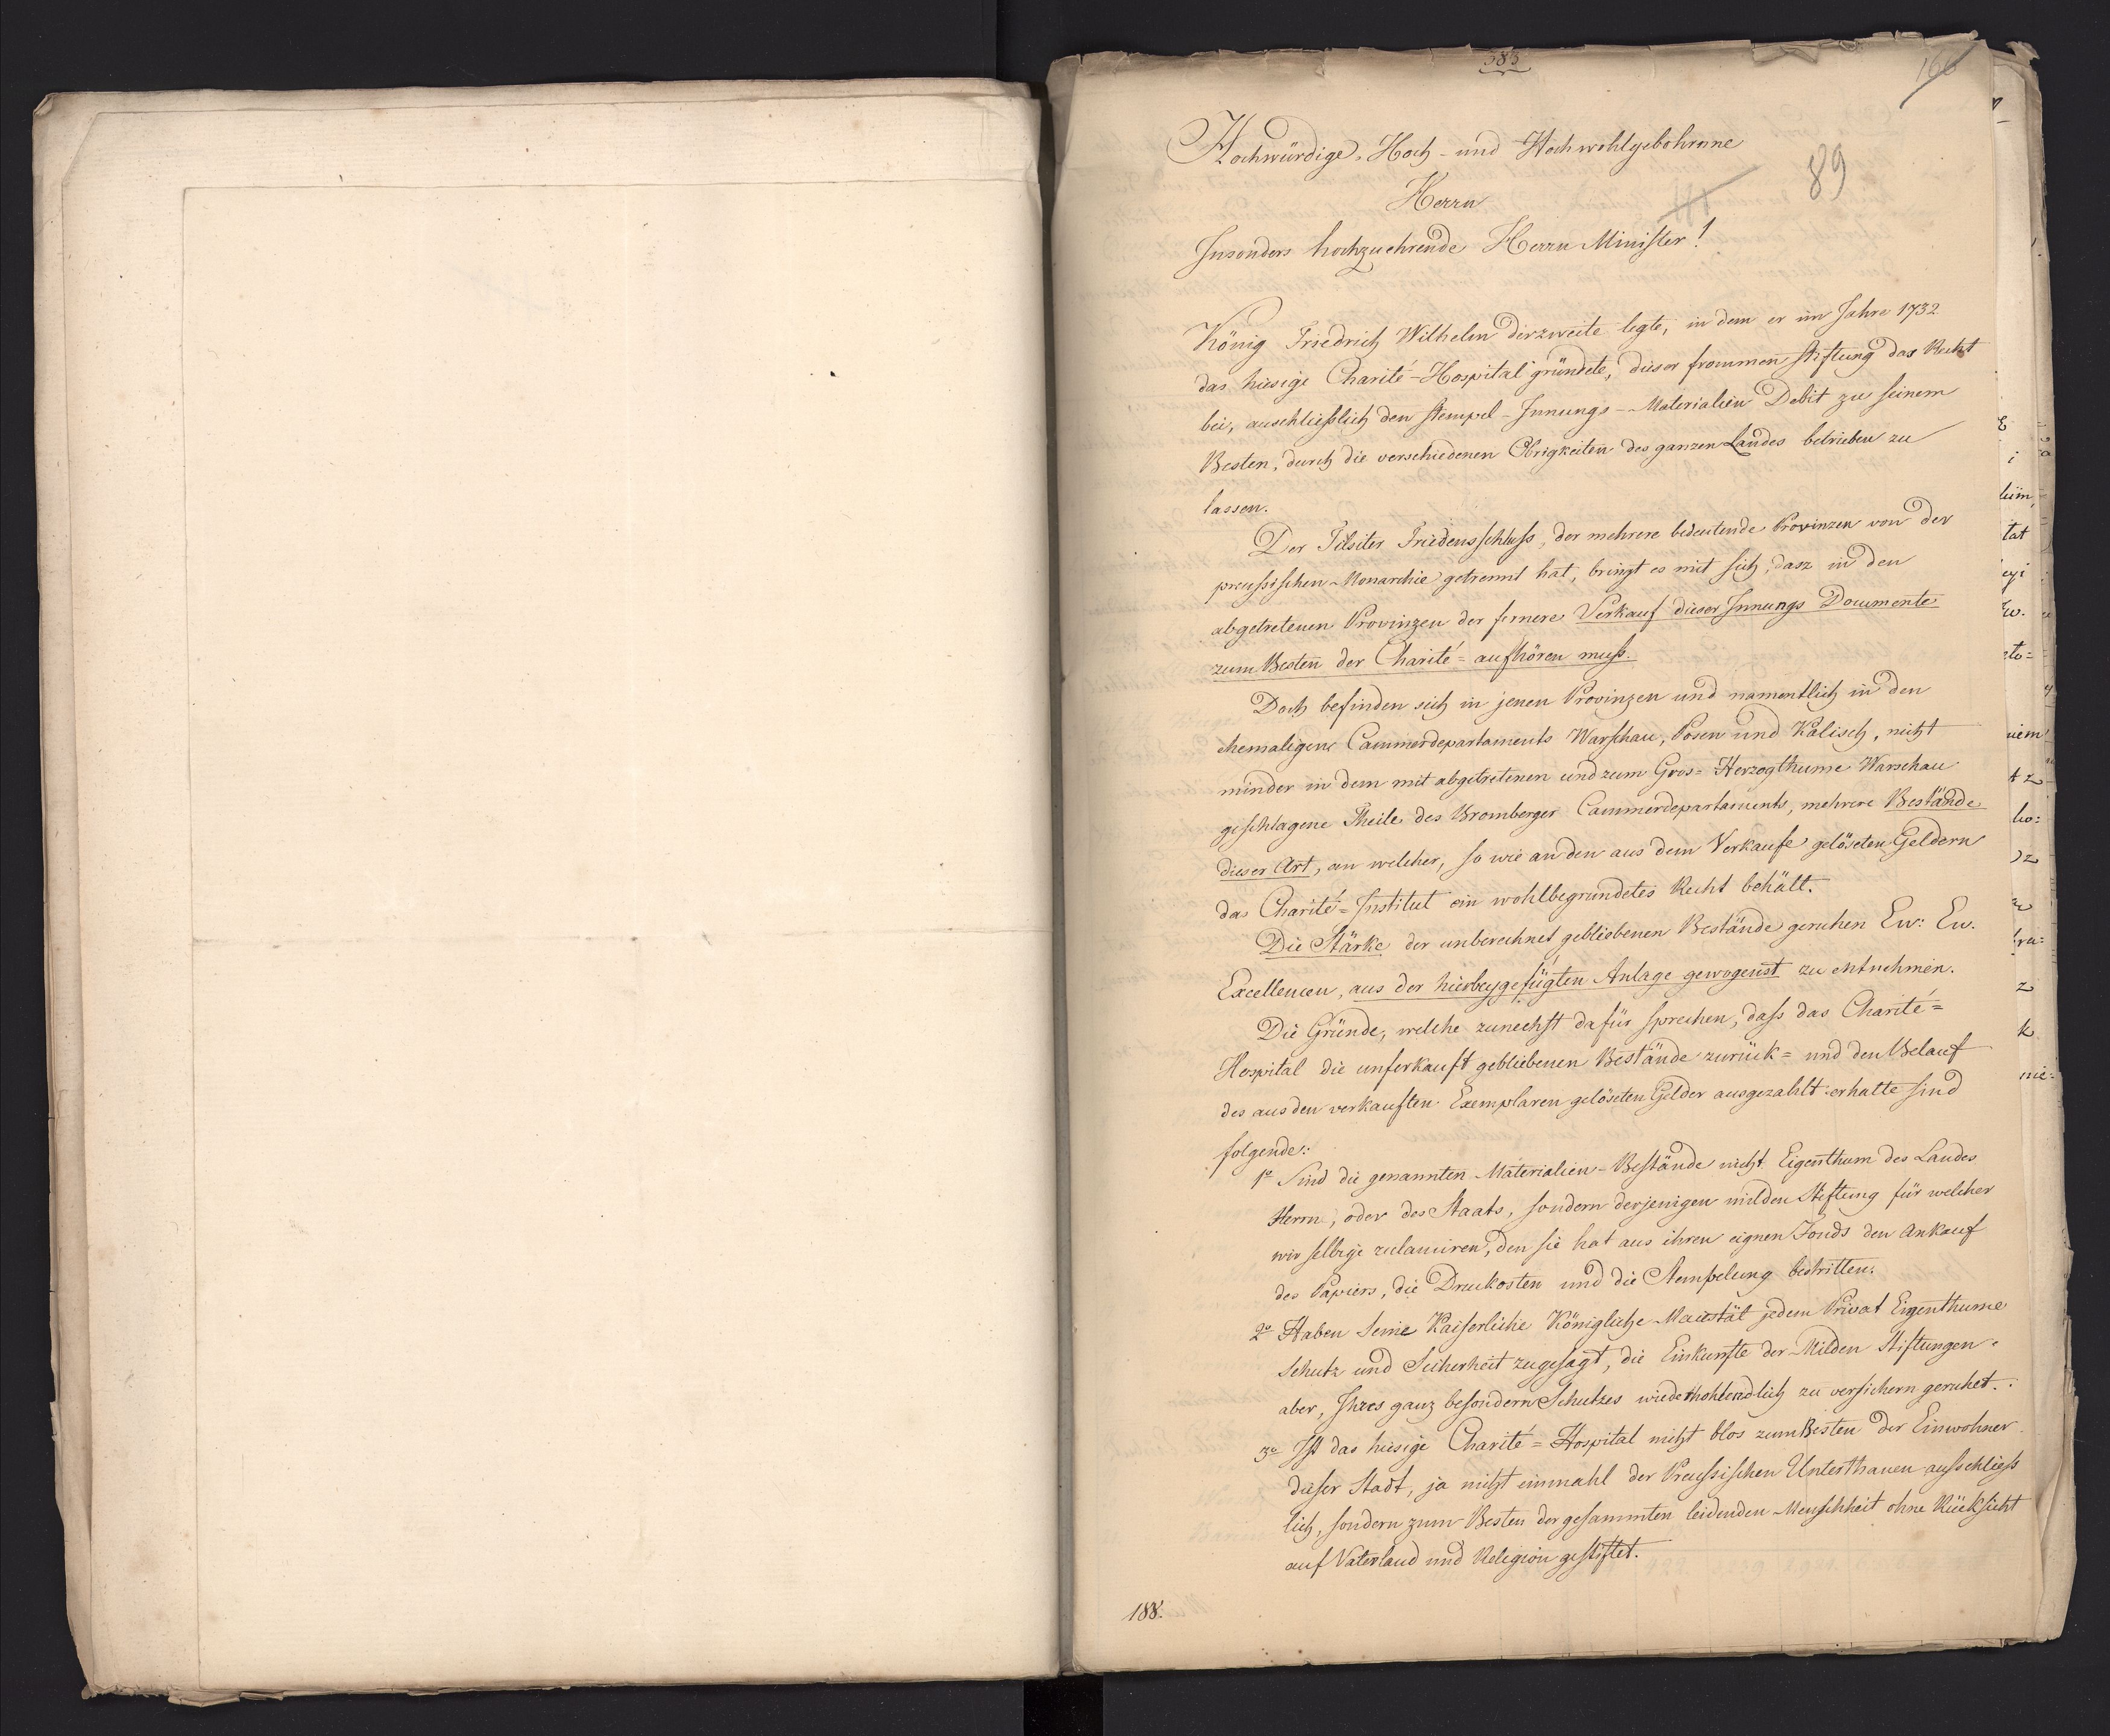 385
166
Hochwürdige, Hoch- und Hochwohlgebohrnne
89
Herrn
Insonders hochzuehrende Herrn Minister!
König Friedrich Wilhelm der zweite legte, in dem er im Jahre 1732
das hiesige Charité-Hospital gründete, dieser frommen Stiftung das Recht
bei, auschließlich den Stempel-Innungs-Materialien Debit zu seinem
Besten, durch die verschiedenen Obrigkeiten des ganzen Landes betrieben zu
lassen.
Der Tilsiter Friedensschluss, der mehrere bedeutende Provinzen von der
preussischen Monarchie getrennt hat, bringt es mit sich, dasz in den
abgetretenen Provinzen der fernere Verkauf dieser Innungs Documente
zum Besten der Charité= aufhören muß.
Doch befinden sich in jenen Provinzen und namentlich in den
ehemaligene Cammerdepartaments Warschau, Posen und Kalisch, nicht
minder in dem mit abgetretenen und zum Gros=Herzogthume Warschau
geschlagene Theile des Bromberger Cammerdepartaments, mehrere Bestände
dieser Art, an welcher, so wie an den aus dem Verkaufe gelöseten Geldern
das Charité=Institut ein wohlbegründetes Recht behält.
Die Stärke der unberechnet gebliebenen Bestände geruhen Ew: Ew.
Excellencen, aus der hierbeygefügten Anlage gewogenst zu entnehmen.
Die Gründe, welche zunechst dafür sprechen, dass das Charité=
Hospital die unferkauft gebliebenen Bestände zurück= und den Belauf
des aus den verkauften Exemplaren gelöseten Gelder ausgezahlt erhalte sind
folgende:
1o Sind die genannten Materialien-Bestände nicht Eigenthum des Landes
Herrn, oder des Staats, sondern derjenigen milden Stiftung für welcher
wir selbige reclamiren, den sie hat aus ihren eignen Fonds den Ankauf
des Papiers, die Druckosten und die Stempelung bestritten.
2o Haben Seine Kaiserliche Königliche Maiestät jedem Privat Eigenthume
Schutz und Sicherheit zugesagt, die Einkunfte der Milden Stiftungen
aber, Ihres ganz besondern Schutzes wiederhohlendlich zu versichern geruhet.
3o Ist das hiesige Charité=Hospital nicht blos zum Besten der Einwohner
dieser Stadt, ja nicht einmahl der Preussischen Unterthanen ausschliess
lich, sondern zum Besten der gesammten leidenden Menschheit ohne Rücksicht
auf Vaterland und Religion gestiftet.
188.